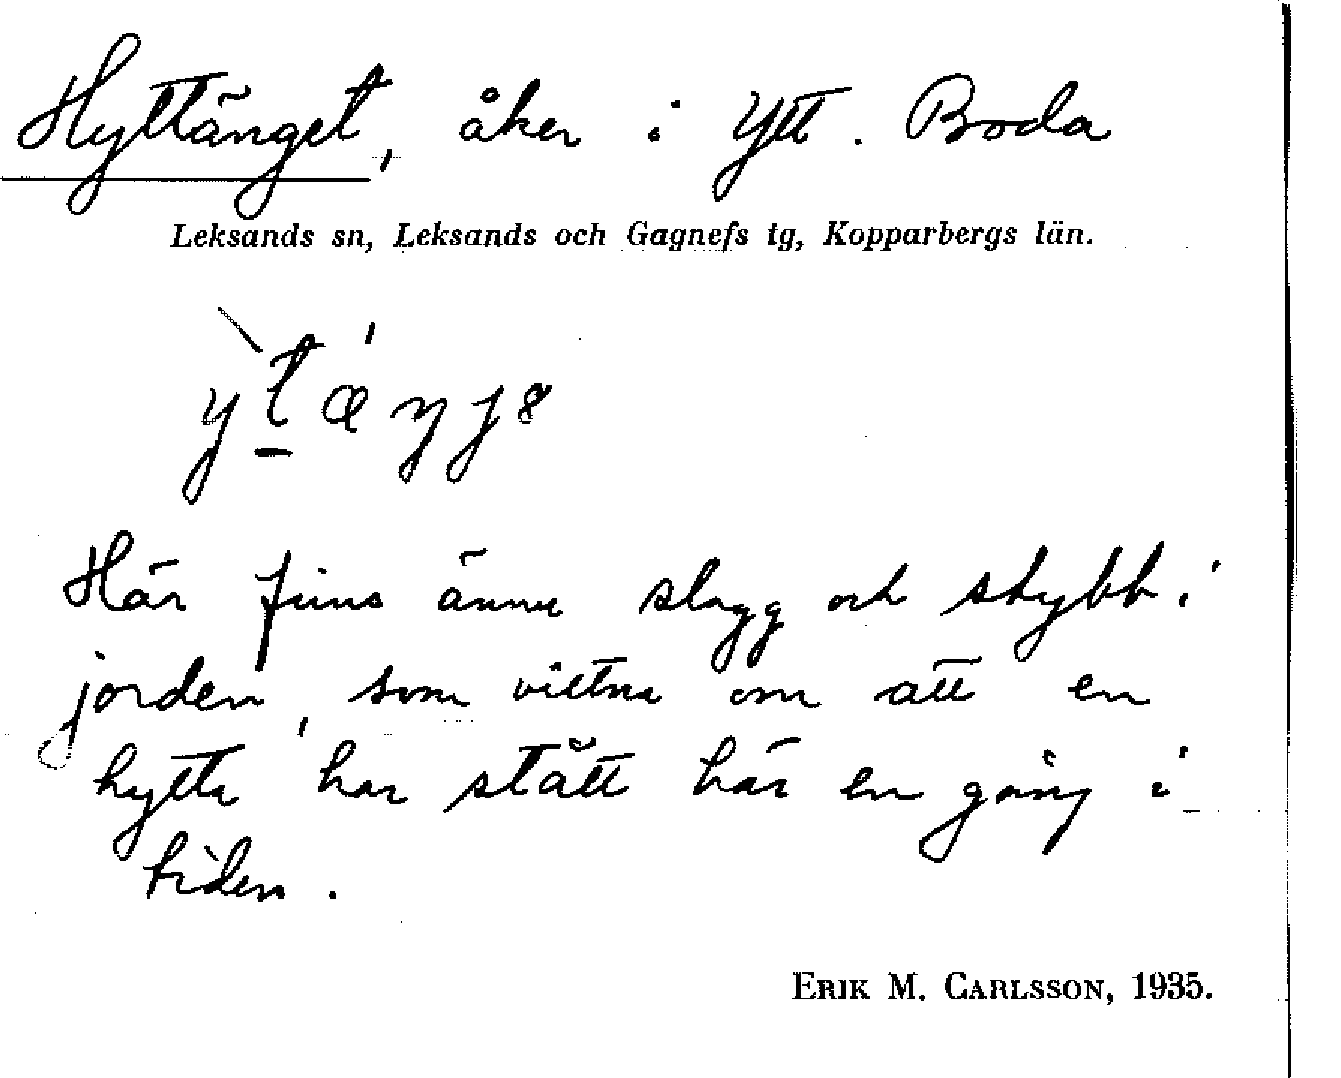 Hyttänget, åker i Ytt. Boda
Leksands sn, Leksands och Gagnefs tg, Kopparbergs län.
Här fins ännu slagg och stybb i
jorden, som vittna om att en
hytta har stått här en gång i
tiden.
ERIK M. CARLSSON, 1935.